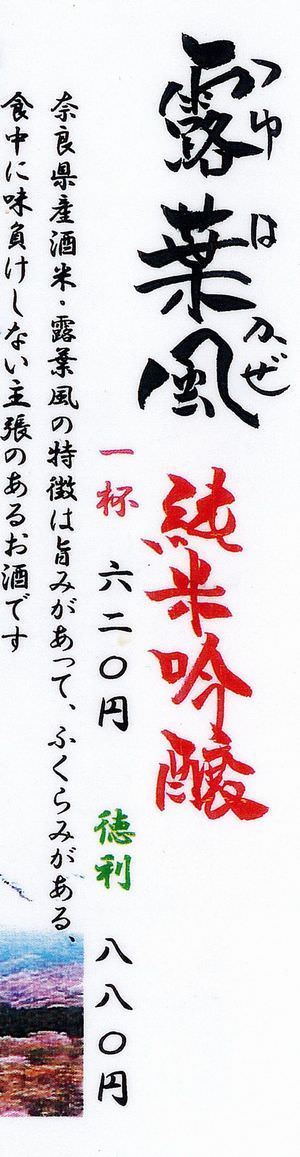 露葉風
つゆはかぜ
純米吟醸
一杯 六二〇円 徳利 八八〇円
奈良県産酒米・露葉風の特徴は旨みがあって、ふくらみがある、
食中に味負けしない主張のあるお酒です